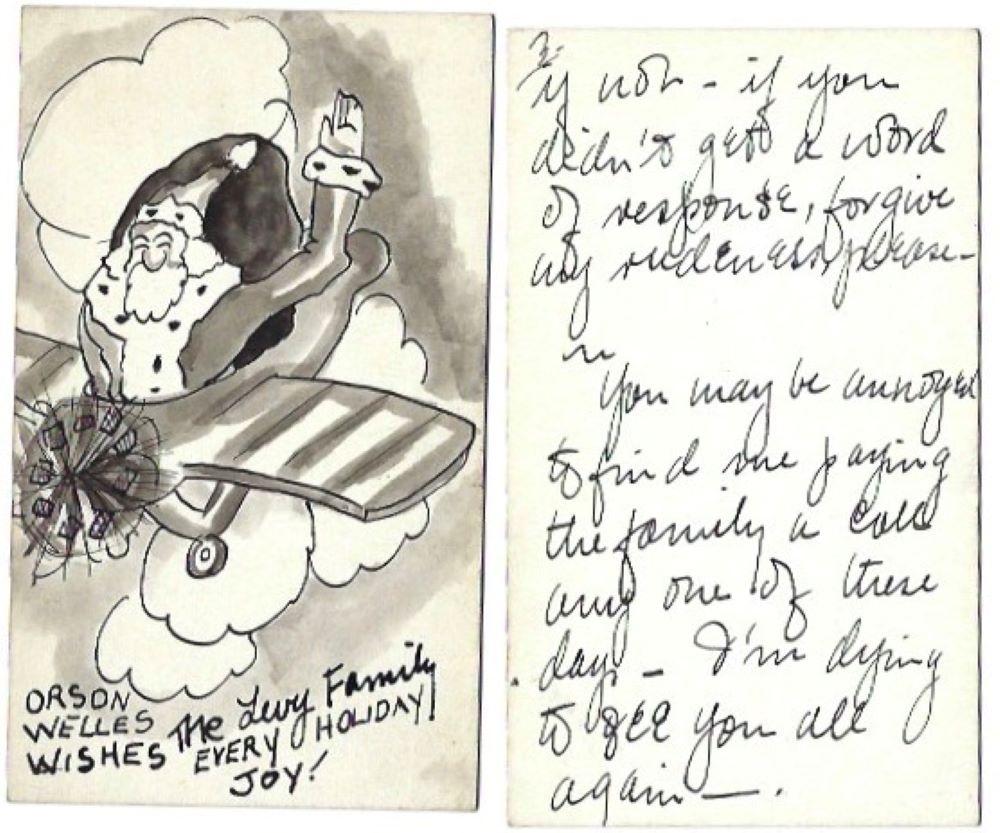 ORSON
WELLES The Levy Family
WISHES EVERY HOLIDAY
JOY!
2-
if not - if you
didn't get a word
of response, forgive
my rudeness, please -
You may be annoyed
to find me paying
the family a call
any one of these
days - I'm dying
to see you all
again — .